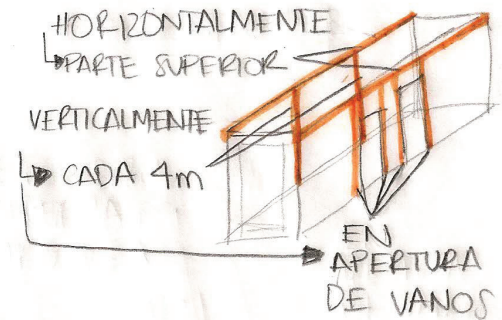 HORIZONTALMENTE
PARTE SUPERIOR
VERTICALMENTE
CADA 4m
EN
APERTURA
DE VANOS